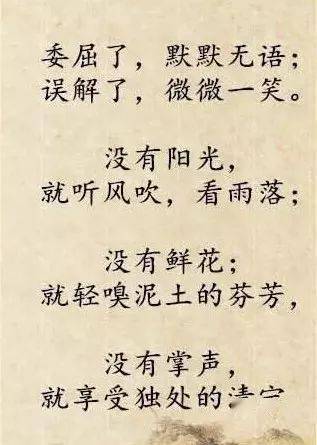 委屈了，默默无语；
误解了，微微一笑。
没有阳光，
就听风吹，看雨落；
没有鲜花；
就轻嗅泥土的芬芳，
没有掌声，
就享受独处的清宁